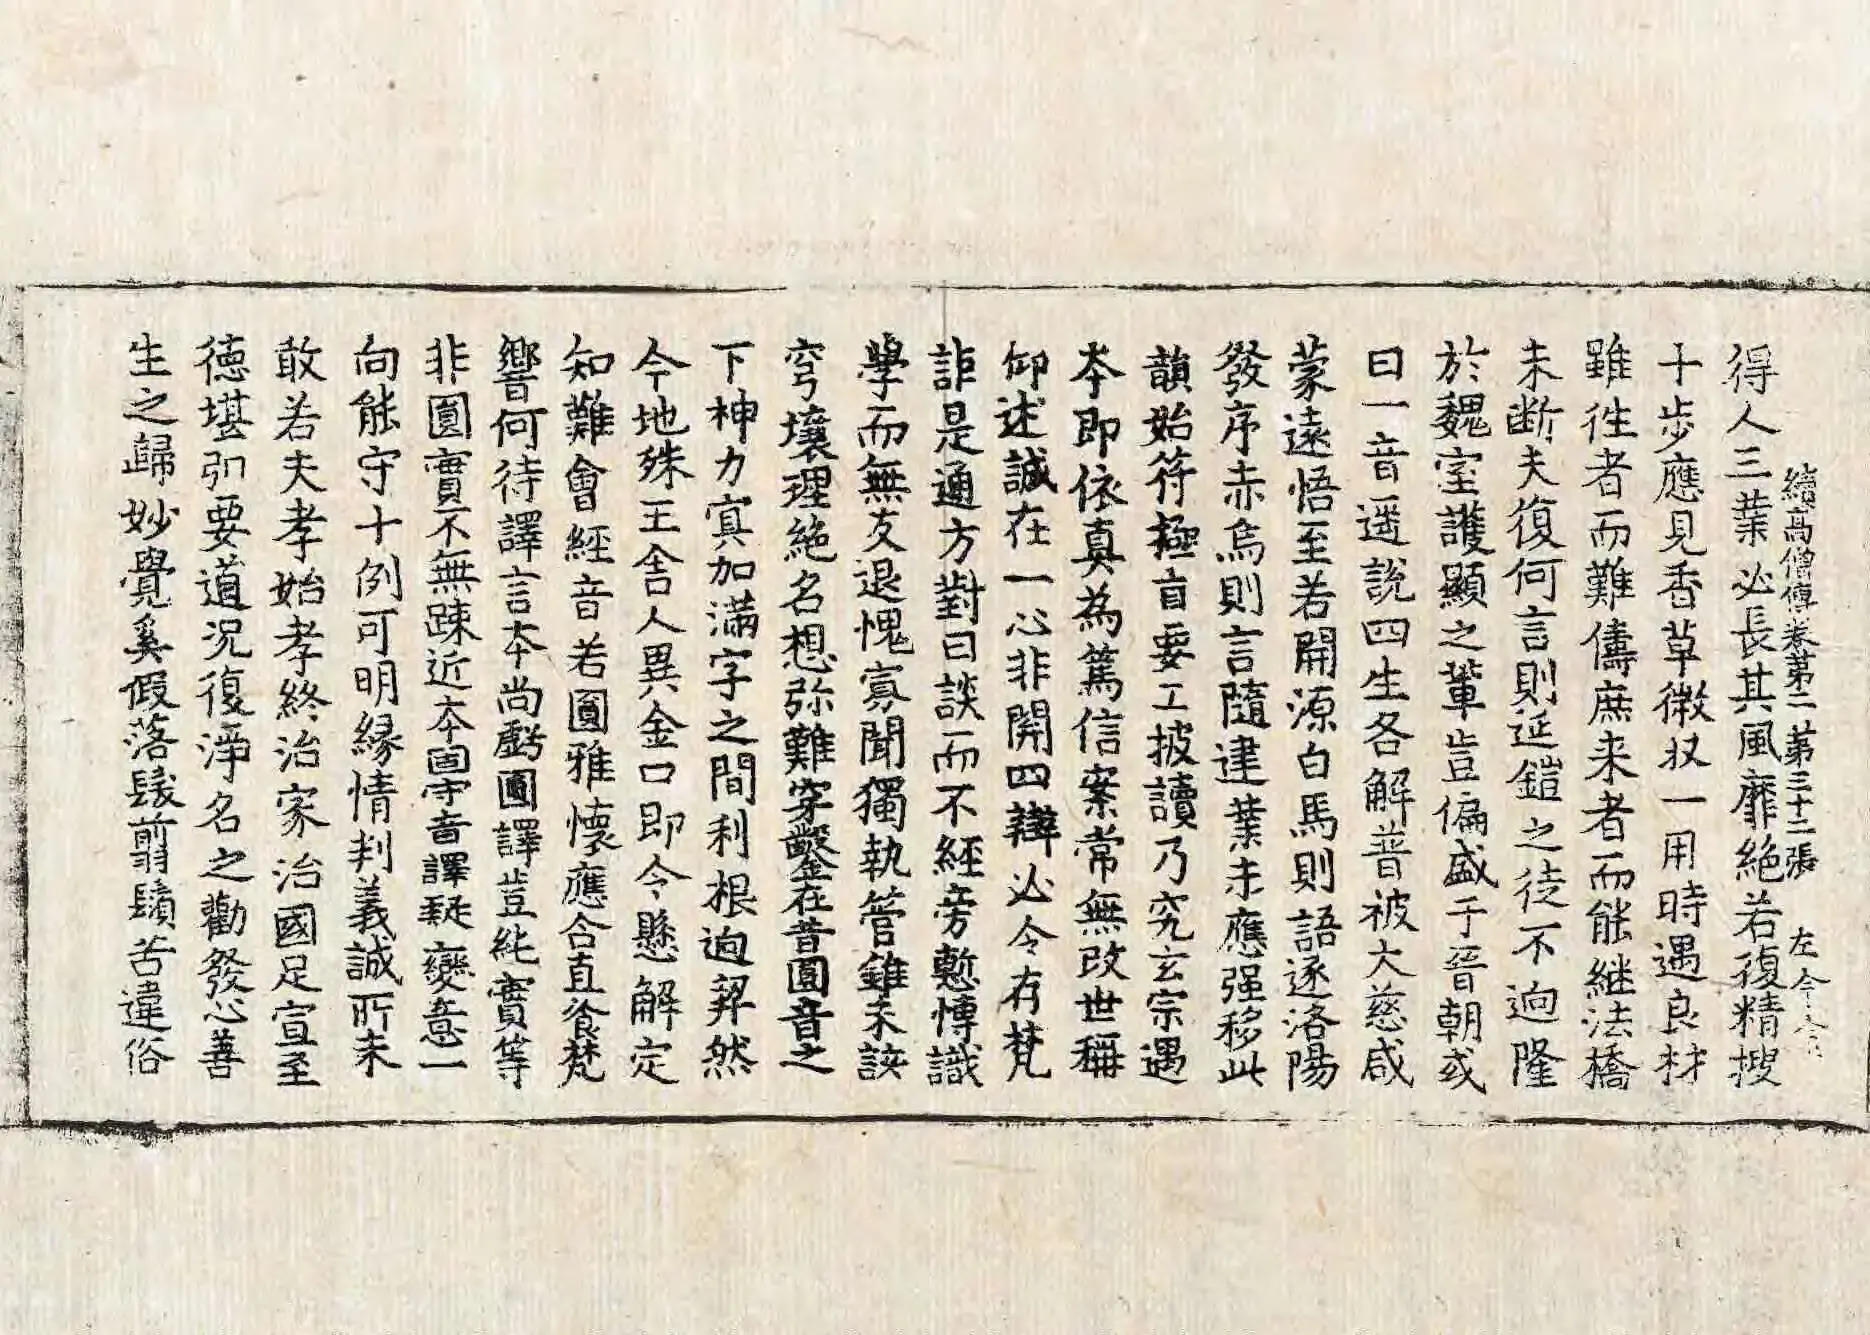 續高僧傳卷第二 第三十二張 左
得人三業必長其風靡絶若復精搜
十步應見香草微收一用時遇良材
雖徃者而難儔庶来者而能継法橋
未断夫復何言則延鎧之徒不逈隆
於魏室護顯之輩豈偏盛于晉朝或
曰一音遥說四生各解普被大慈咸
蒙遠悟至若開源白馬則語逐洛陽
發序赤烏則言隨建業未應强移此
韻始符極旨要工披讀乃究玄宗遇
夲即依真為篤信案常無改世稱
仰述誠在一心非開四辯必令存梵
詎是通方對曰談而不經旁慙愽識
學而無友退愧寡聞獨執管錐未該
穹壤理絶名想弥難穿鑿在昔圎音之
下神力㝠加滿字之間利根逈契然
今地殊王舍人異金口即令懸解定
知難會經音若圎雅懷應合直飡梵
響何待譯言夲尚虧圎譯豈純實等
非圎實不無踈近夲固守音譯疑變意一
向能守十例可明緣情判義誠所未
敢若夫孝始孝終治家治國足宣至
德堪弘要道況復淨名之勸發心善
生之歸妙覺奚假落髮翦鬚苦違俗